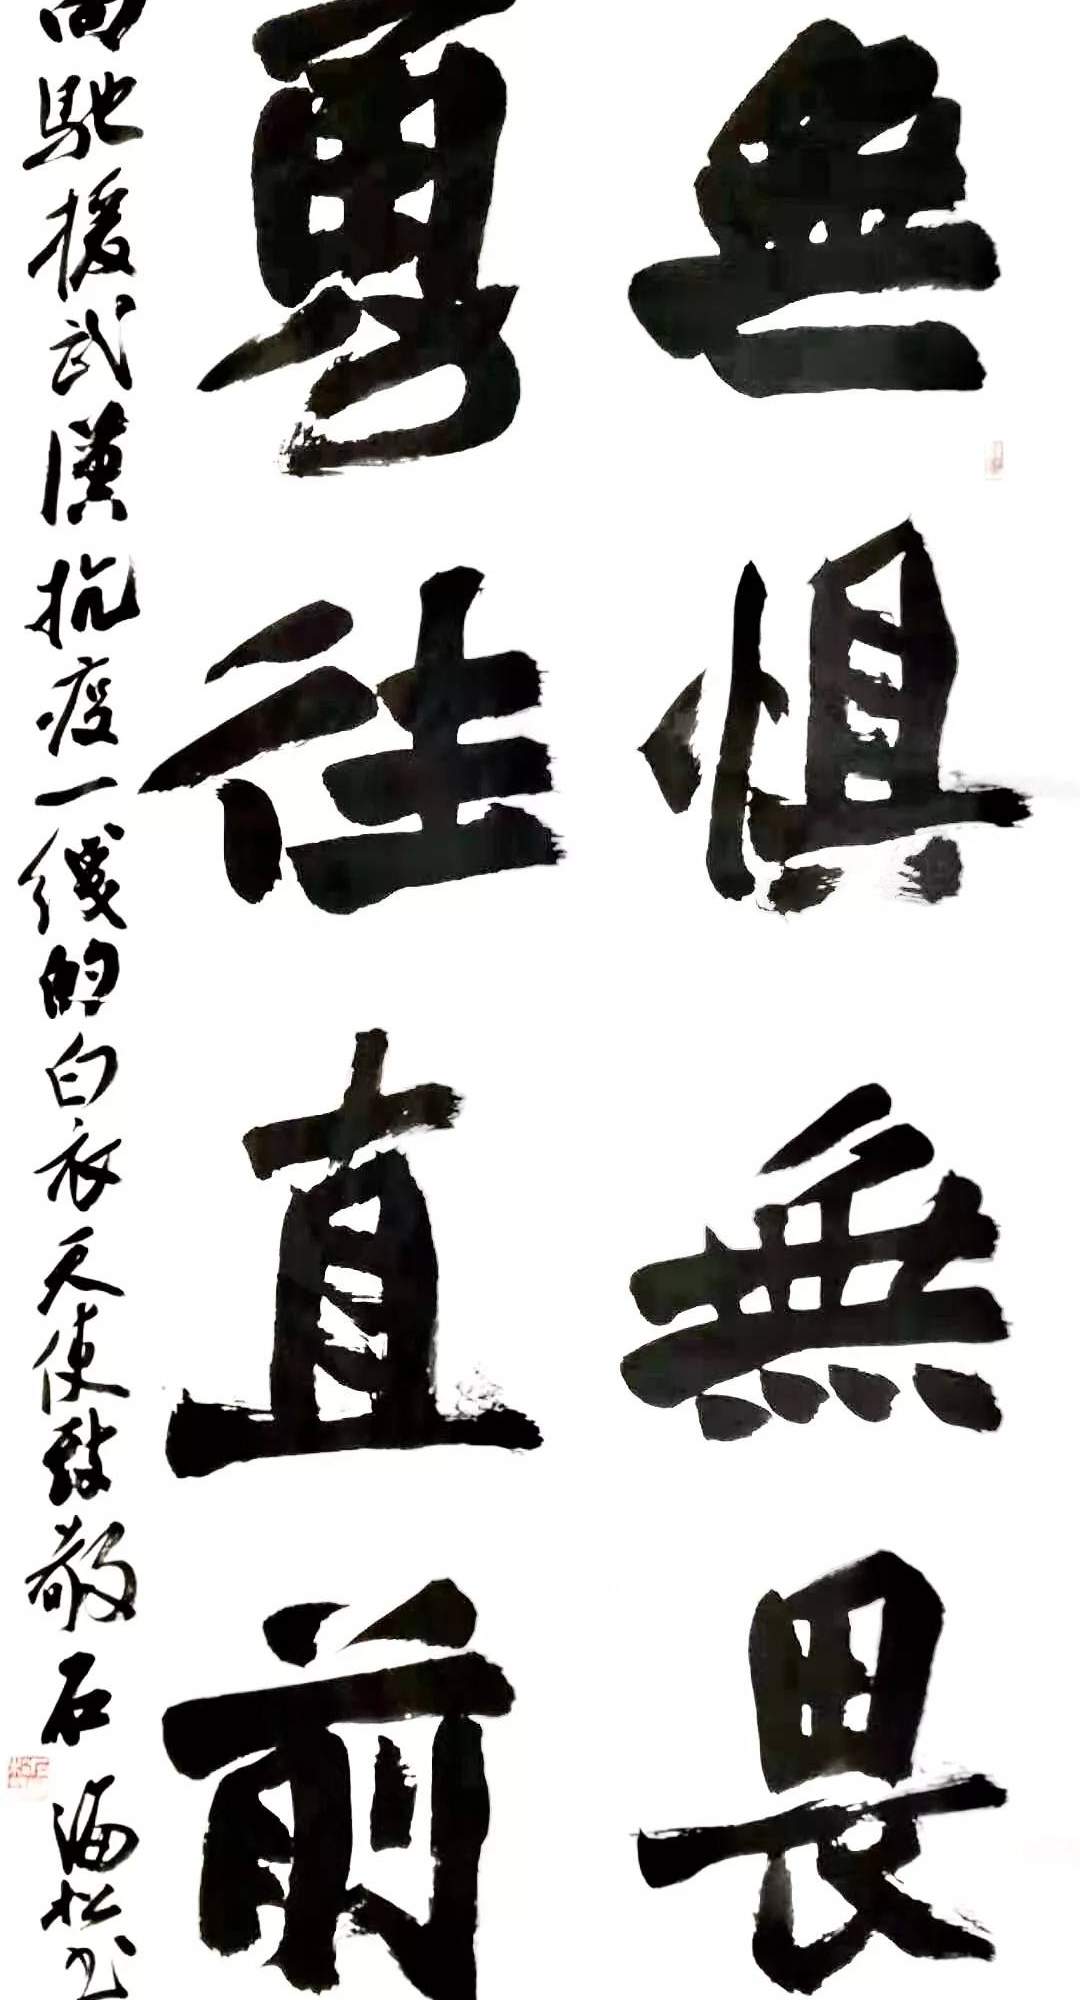 無惧無畏
勇往直前
向馳援武漢抗疫一綫的白衣天使致敬石海松书